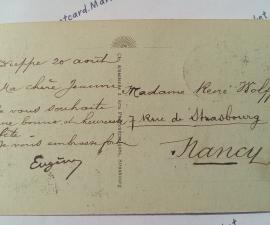 Dieppe 20 août
Ma chère Jeanne
Je vous souhaite
une bonne et heureuse
fête
Je vous embrasse
Eugène
Madame René Wolf
7 Rue de Strasbourg
Nancy